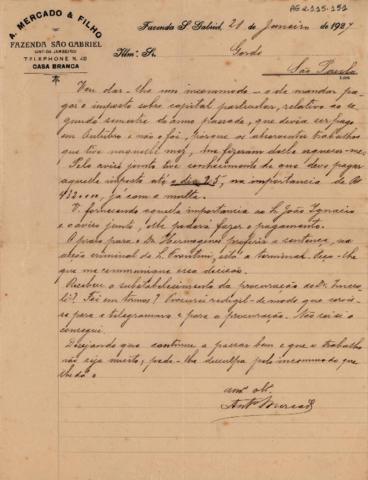 AG 2.115.151
A. MERCADO & FILHO
FAZENDA SÃO GABRIEL
TELEPHONE N. 40
CASA BRANCA
Fazenda S. Gabriel, 21 de Janeiro de 1907
Illmo. Sr. Gordo
São Paulo
Vem dar-lhe um incommodo - o de mandar pa-
gar o imposto sobre capital particular, relativo ao se-
gundo semestre do anno passado, que devia ser pago
em Outubro e não o foi, porque os
que tive naquelle mez, me fizeram
Pelo aviso junto tive conhecimento de que devo pagar
aquelle imposto até o dia 25, na importancia de
já com a multa.
V. fornecendo aquella importancia ao Sr. João Ignacio
e o aviso junto, elle poderá fazer o pagamento.
O prazo para o Dr. Hermogenes proferir a sentença, na
acção criminal de está a terminar. Peço-lhe
que me communique essa decisão.
Recebeu o substabelecimento da procuração do Dr.
Foi em termos? Procurei redigil-o de modo que
se para o telegramma e para a procuração. Não sei si o
consegui.
Desejando que continue a passar bem e que o trabalho
não seja muito, pede-lhe desculpa pelo incommodo que
lhe dá o
amo. ob.
Anto. Mercado